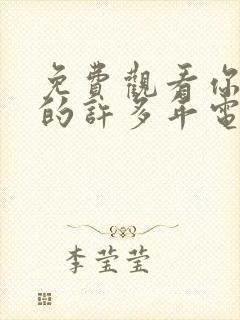 免費觀看你
的許多年電
李莹莹